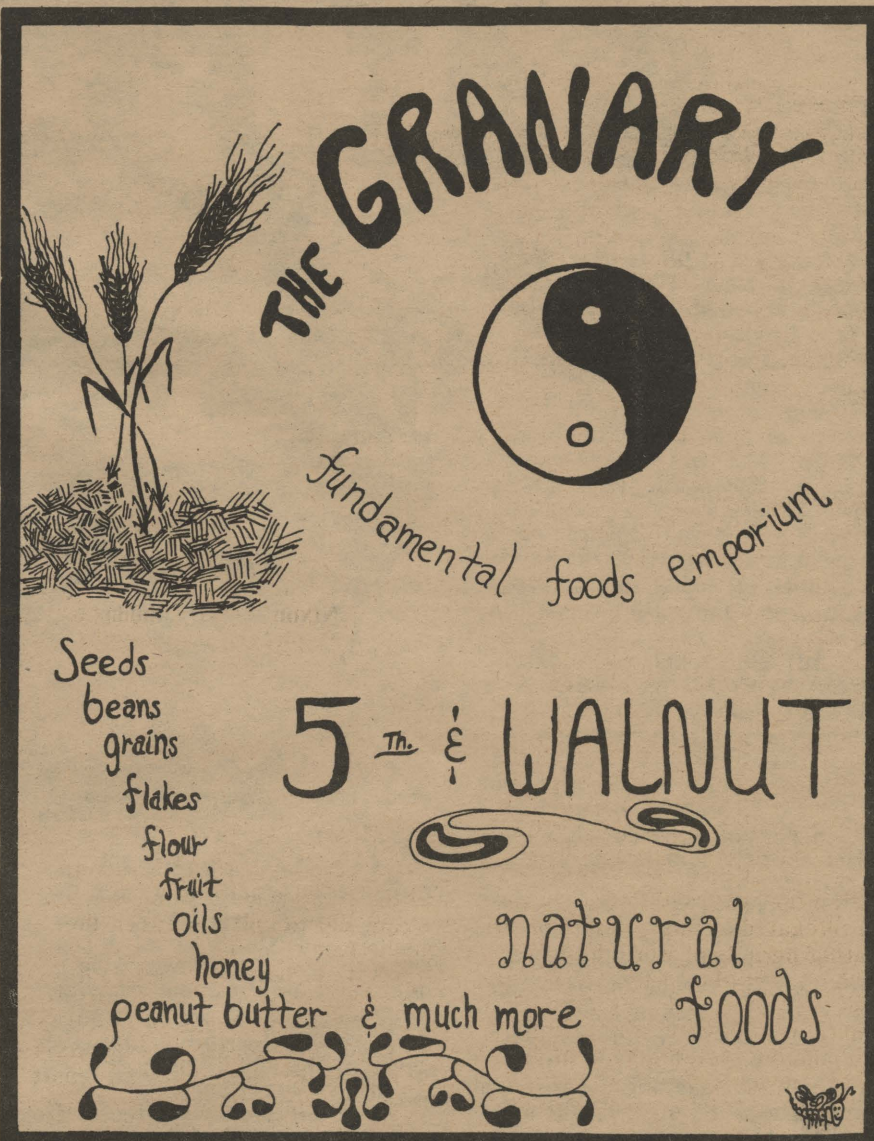 THE GRANARY
fundamental foods emporium
Seeds
beans
grains
flakes
flour
fruit
oils
honey
peanut butter & much more
5 Th. & WALNUT
natural
foods